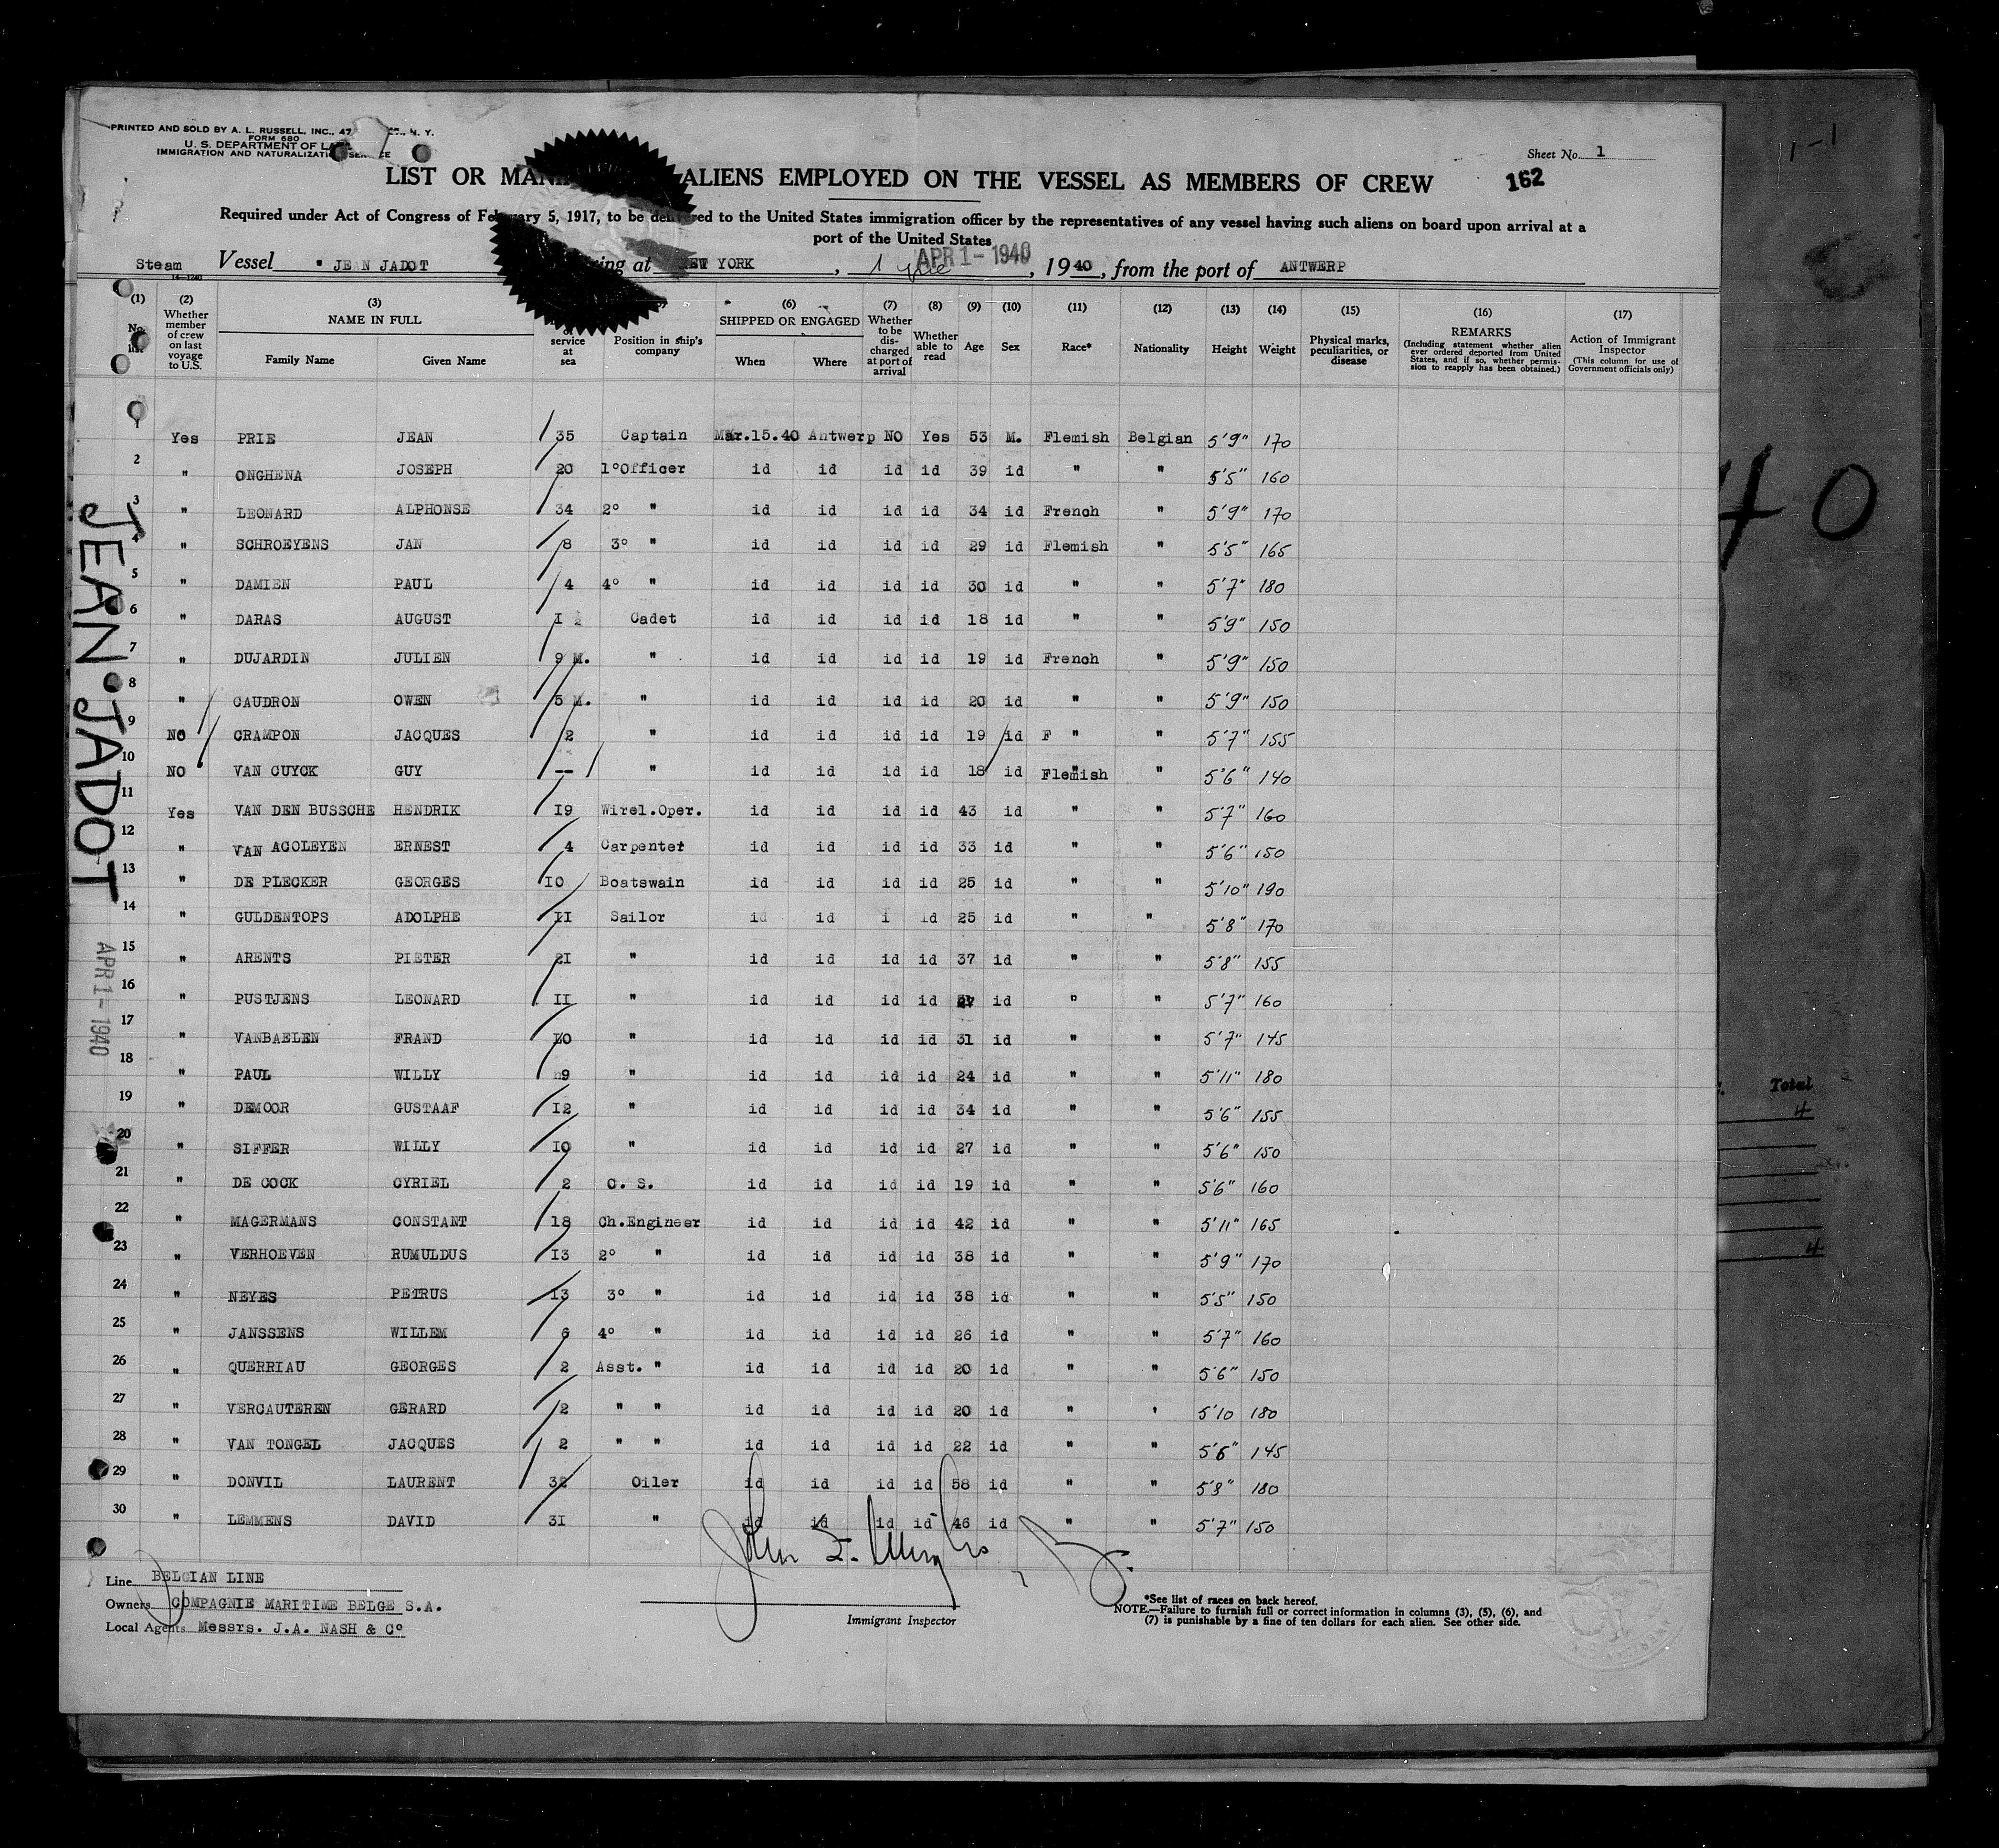 PRINTED AND SOLD BY A. L. RUSSELL, INC., 47 N. Y.
FORM 680
U. S. DEPARTMENT OF
IMMIGRATION AND NATURALIZATION SERVICE
Sheet No. 1
LIST OR ALIENS EMPLOYED ON THE VESSEL AS MEMBERS OF CREW 162
Required under Act of Congress of February 5, 1917, to be delivered to the United States immigration officer by the representatives of any vessel having such aliens on board upon arrival at a
port of the United States
Steam Vessel JEAN JADOT at YORK, APR 1 - 1940, 1940, from the port of ANTWERP
(1) (2) (3) (6) (7) (8) (9) (10) (11) (12) (13) (14) (15) (16) (17)
No. Whether member of crew on last voyage to U.S. NAME IN FULL Family Name Given Name service at sea Position in ship's company SHIPPED OR ENGAGED When Where Whether to be discharged at port of arrival Whether able to read Age Sex Race* Nationality Height Weight Physical marks, peculiarities, or disease REMARKS (Including statement whether alien ever ordered deported from United States, and if so, whether permission to reapply has been obtained.) Action of Immigrant Inspector (This column for use of Government officials only)
1 Yes PRIE JEAN 35 Captain Mar.15.40 Antwerp NO Yes 53 M. Flemish Belgian 5'9" 170
2 " ONGHENA JOSEPH 20 1°Officer id id id id 39 id " " 5'5" 160
3 " LEONARD ALPHONSE 34 2° " id id id id 34 id French " 5'9" 170
4 " SCHROEYENS JAN 8 3° " id id id id 29 id Flemish " 5'5" 165
5 " DAMIEN PAUL 4 4° " id id id id 30 id " " 5'7" 180
6 " DARAS AUGUST I Cadet id id id id 18 id " " 5'9" 150
7 " DUJARDIN JULIEN 9 M. " id id id id 19 id French " 5'9" 150
8 " CAUDRON OWEN 5 M. " id id id id 20 id " " 5'9" 150
9 NO CRAMPON JACQUES 2 " id id id id 19 id F " " 5'7" 155
10 NO VAN CUYCK GUY -- " id id id id 18 id Flemish " 5'6" 140
11 Yes VAN DEN BUSSCHE HENDRIK I9 Wirel.Oper. id id id id 43 id " " 5'7" 160
12 " VAN ACOLEYEN ERNEST 4 Carpenter id id id id 33 id " " 5'6" 150
13 " DE PLECKER GEORGES I0 Boatswain id id id id 25 id " " 5'10" 190
14 " GULDENTOPS ADOLPHE II Sailor id id i id 25 id " " 5'8" 170
15 " ARENTS PIETER 2I " id id id id 37 id " " 5'8" 155
16 " PUSTJENS LEONARD II " id id id id id " " 5'7" 160
17 " VANBAELEN FRAND I0 " id id id id 31 id " " 5'7" 145
18 " PAUL WILLY 9 " id id id id 24 id " " 5'11" 180
19 " DEMOOR GUSTAAF I2 " id id id id 34 id " " 5'6" 155
20 " SIFFER WILLY I0 " id id id id 27 id " " 5'6" 150
21 " DE COCK CYRIEL 2 O. S. id id id id 19 id " " 5'6" 160
22 " MAGERMANS CONSTANT 18 Ch.Engineer id id id id 42 id " " 5'11" 165
23 " VERHOEVEN RUMULDUS I3 2° " id id id id 38 id " " 5'9" 170
24 " NEYES PETRUS I3 3° " id id id id 38 id " " 5'5" 150
25 " JANSSENS WILLEM 6 4° " id id id id 26 id " " 5'7" 160
26 " QUERRIAU GEORGES 2 Asst. " id id id id 20 id " " 5'6" 150
27 " VERCAUTEREN GERARD 2 " " id id id id 20 id " ' 5'10 180
28 " VAN TONGEL JACQUES 2 " " id id id id 22 id " " 5'6" 145
29 " DONVIL LAURENT 32 Oiler id id id id 58 id " " 5'8" 180
30 " LEMMENS DAVID 3I " id id id id 46 id " " 5'7" 150
Line BELGIAN LINE
Owners COMPAGNIE MARITIME BELGE S.A.
Local Agents Messrs. J.A. NASH & C°
Immigrant Inspector
*See list of races on back hereof.
NOTE.—Failure to furnish full or correct information in columns (3), (5), (6), and
(7) is punishable by a fine of ten dollars for each alien. See other side.
JEAN JADOT
APR 1 - 1940
40
Total
4
4